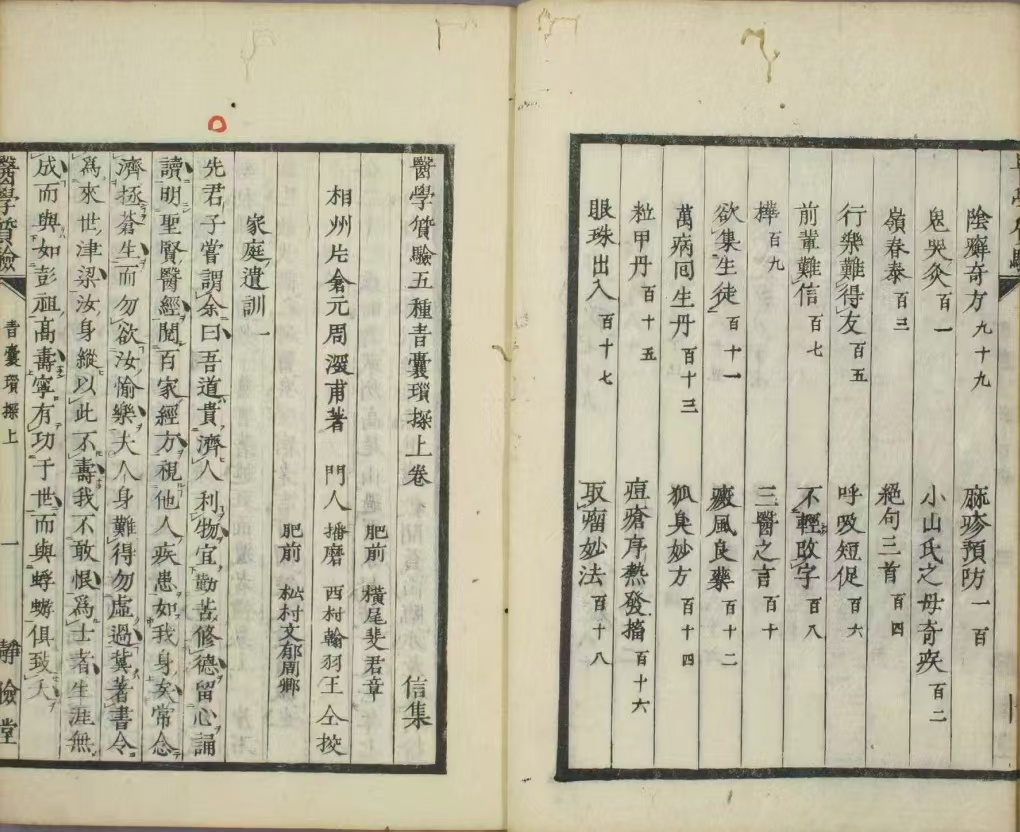 陰癬奇方 九十九
麻疹預防 一百
鬼哭灸 百一
小山氏之母奇疾 百二
嶺春泰 百三
絕句三首 百四
行樂難得友 百五
呼吸短促 百六
前輩難信 百七
不輕改字 百八
樺 百九
三醫之言 百十
欲集生徒 百十一
癜風良藥 百十二
萬病回生丹 百十三
狐臭妙方 百十四
粒甲丹 百十五
痘瘡序熱發搐 百十六
眼珠出入 百十七
取瘤妙法 百十八
醫學質驗五種青囊瑣探上卷 信集
相州片倉元周深甫著 門人
肥前 橫尾斐君章
播磨 西村翰羽王 仝挍
肥前 松村文郁周鄉
家庭遺訓 一
先君子嘗謂余曰吾道貴濟人利物宜勤苦修德留心誦
讀明聖賢醫經閱百家經方視他人疾患如我身矣常念
濟拯蒼生而勿欲汝愉樂夫人身難得勿虛過冀著書令
爲來世津梁汝身縱以此不壽我不敢恨爲士者生涯無
成而與如彭祖高壽寧有功于世而與蜉蝣俱致夭
醫學質驗
青囊瑣探上 一
靜儉堂